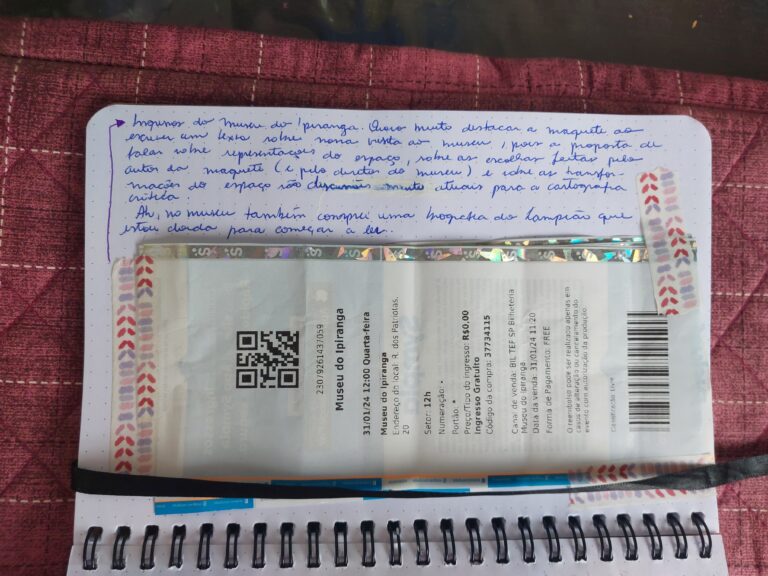 Ingresso do museu do Ipiranga. Quero muito destacar a maquete ao
escrever um texto sobre nossa visita ao museu, pois a proposta de
falar sobre representações do espaço, sobre as escolhas feitas pelo
autor da maquete (e pelo diretor do museu) e sobre as transfor-
mações do espaço são discussões muito atuais para a cartografia
crítica.
Ah, no museu também comprei uma biografia do Lampião que
estou doida para começar a ler.
23079261437059
Museu do Ipiranga
31/01/24 12:00 Quarta-feira
Museu do Ipiranga
Endereço do local: R. dos Patriotas,
20
Setor: 12h
Numeração: *
Portão: *
Preço/Tipo do ingresso: R$0,00
Ingresso Gratuito
Código da compra: 37734115
Canal de venda: BIL TEF SP Bilheteria
Museu do Ipiranga
Data da venda: 31/01/24 11:20
Forma de Pagamento: FREE
O reembolso pode ser realizado apenas em
casos de alteração ou cancelamento do
evento com autorização da produção